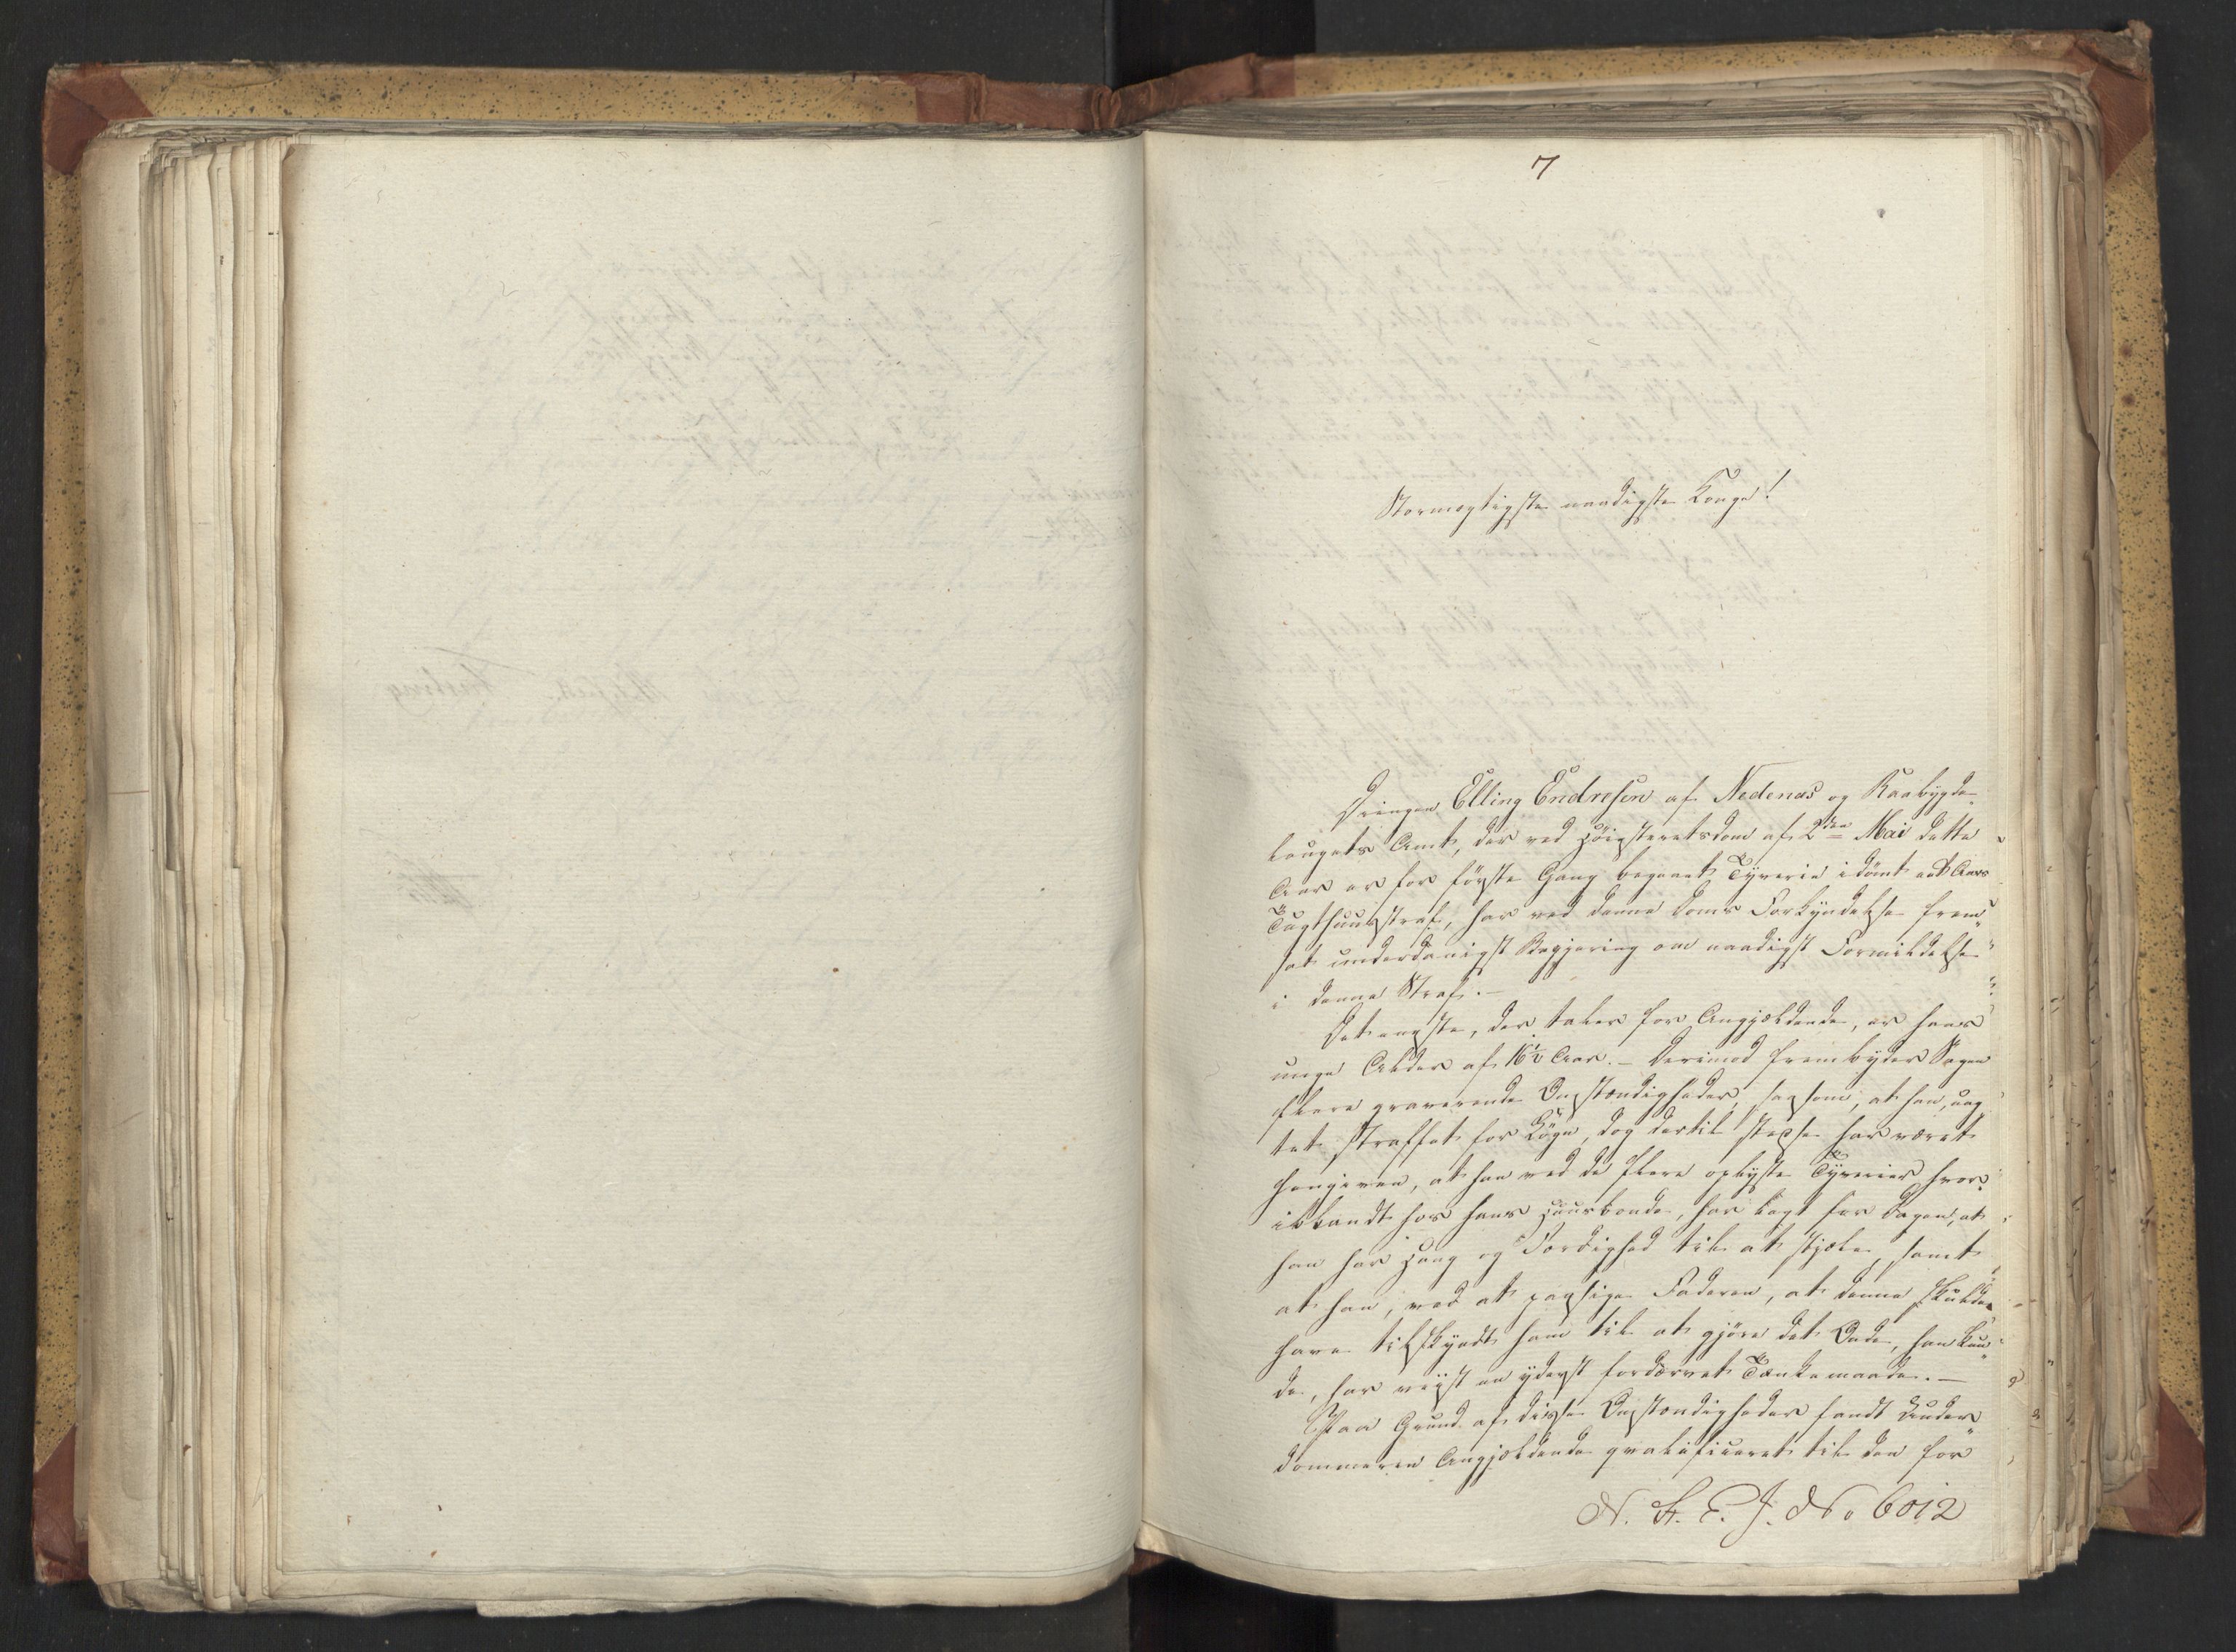 7
Stormægtigste naadigste Konge!
Drengen Elling Endresen af Nedenæs og Raabygde-
laugets Amt, der ved Høiesteretsdom af 2den Mai dette
Aar er for første Gang begaaet Tyverie idømt et Aars
Tugthuusstraf, har ved denne Doms Forkyndelse frem-
sat underdanigst Begjæring om naadigst Formildelse
i denne Straf. -
Det eneste, der taler for Angjældende, er hans
unge Alder af 16½ Aar. - Derimod frembyder Sagen
flere graverende Omstændigheder, saasom, at han, uag-
tet straffet for Løgn, dog dertil stedse har været
hengiven, at han ved de flere oplyste Tyverier, hvor-
iblandt hos hans Huusbonde, har lagt for Dagen, at
han har Hang og Færdighed til at stjæle, samt
at han, ved at paasige Faderen, at denne skulde
have tilskyndt ham til at gjøre det Onde, han kun-
de, har viist en yderst fordærvet Tænkemaade. -
Paa Grund af disse Omstændigheder fandt Under-
dommeren Angjældende qvalificeret til den for
N. St. E. J. No 6012